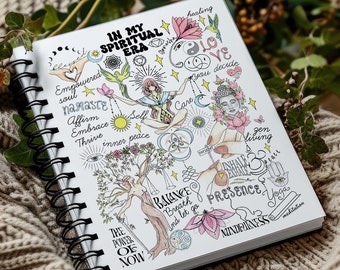 IN MY
SPIRITUAL
ERA
healing
LOVE
you decide
Empowered
soul
namaste
Affirm
Embrace
Thrive
Self
Care
inner peace
zen
living
INHALE
EXHALE
BALANCE
Breath
PRESENCE
Yoga
meditation
THE
POWER
OF
NOW
MINDFULNESS